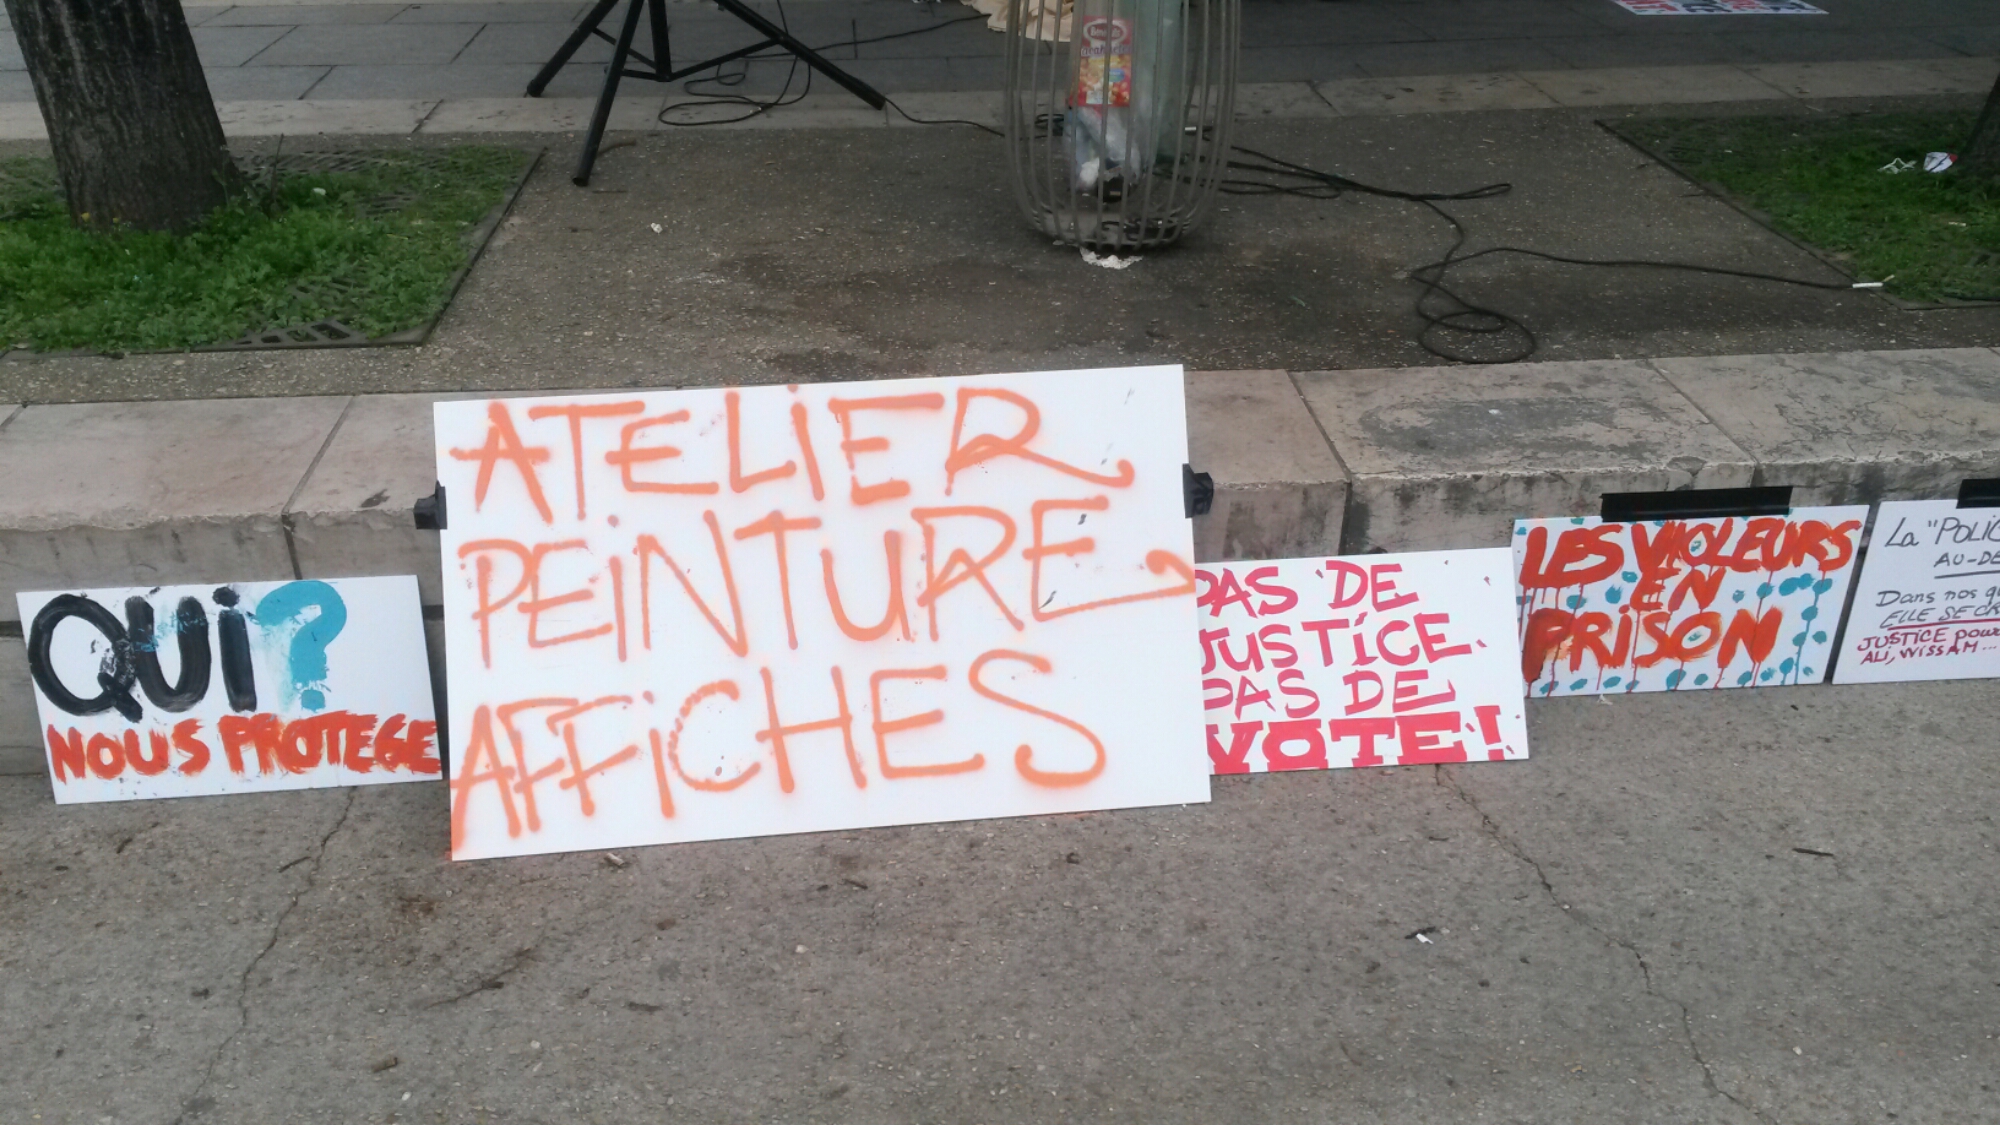 QUi?
NOUS PROTEGE
ATELIER
PEINTURE
AFFICHES
PAS DE
JUSTICE.
PAS DE
VOTE!
LES VIOLEURS
EN
PRISON
La "POLIC
AU-DE
Dans nos
ELLE SE CR
JUSTICE pour
ALI, WISSAM...